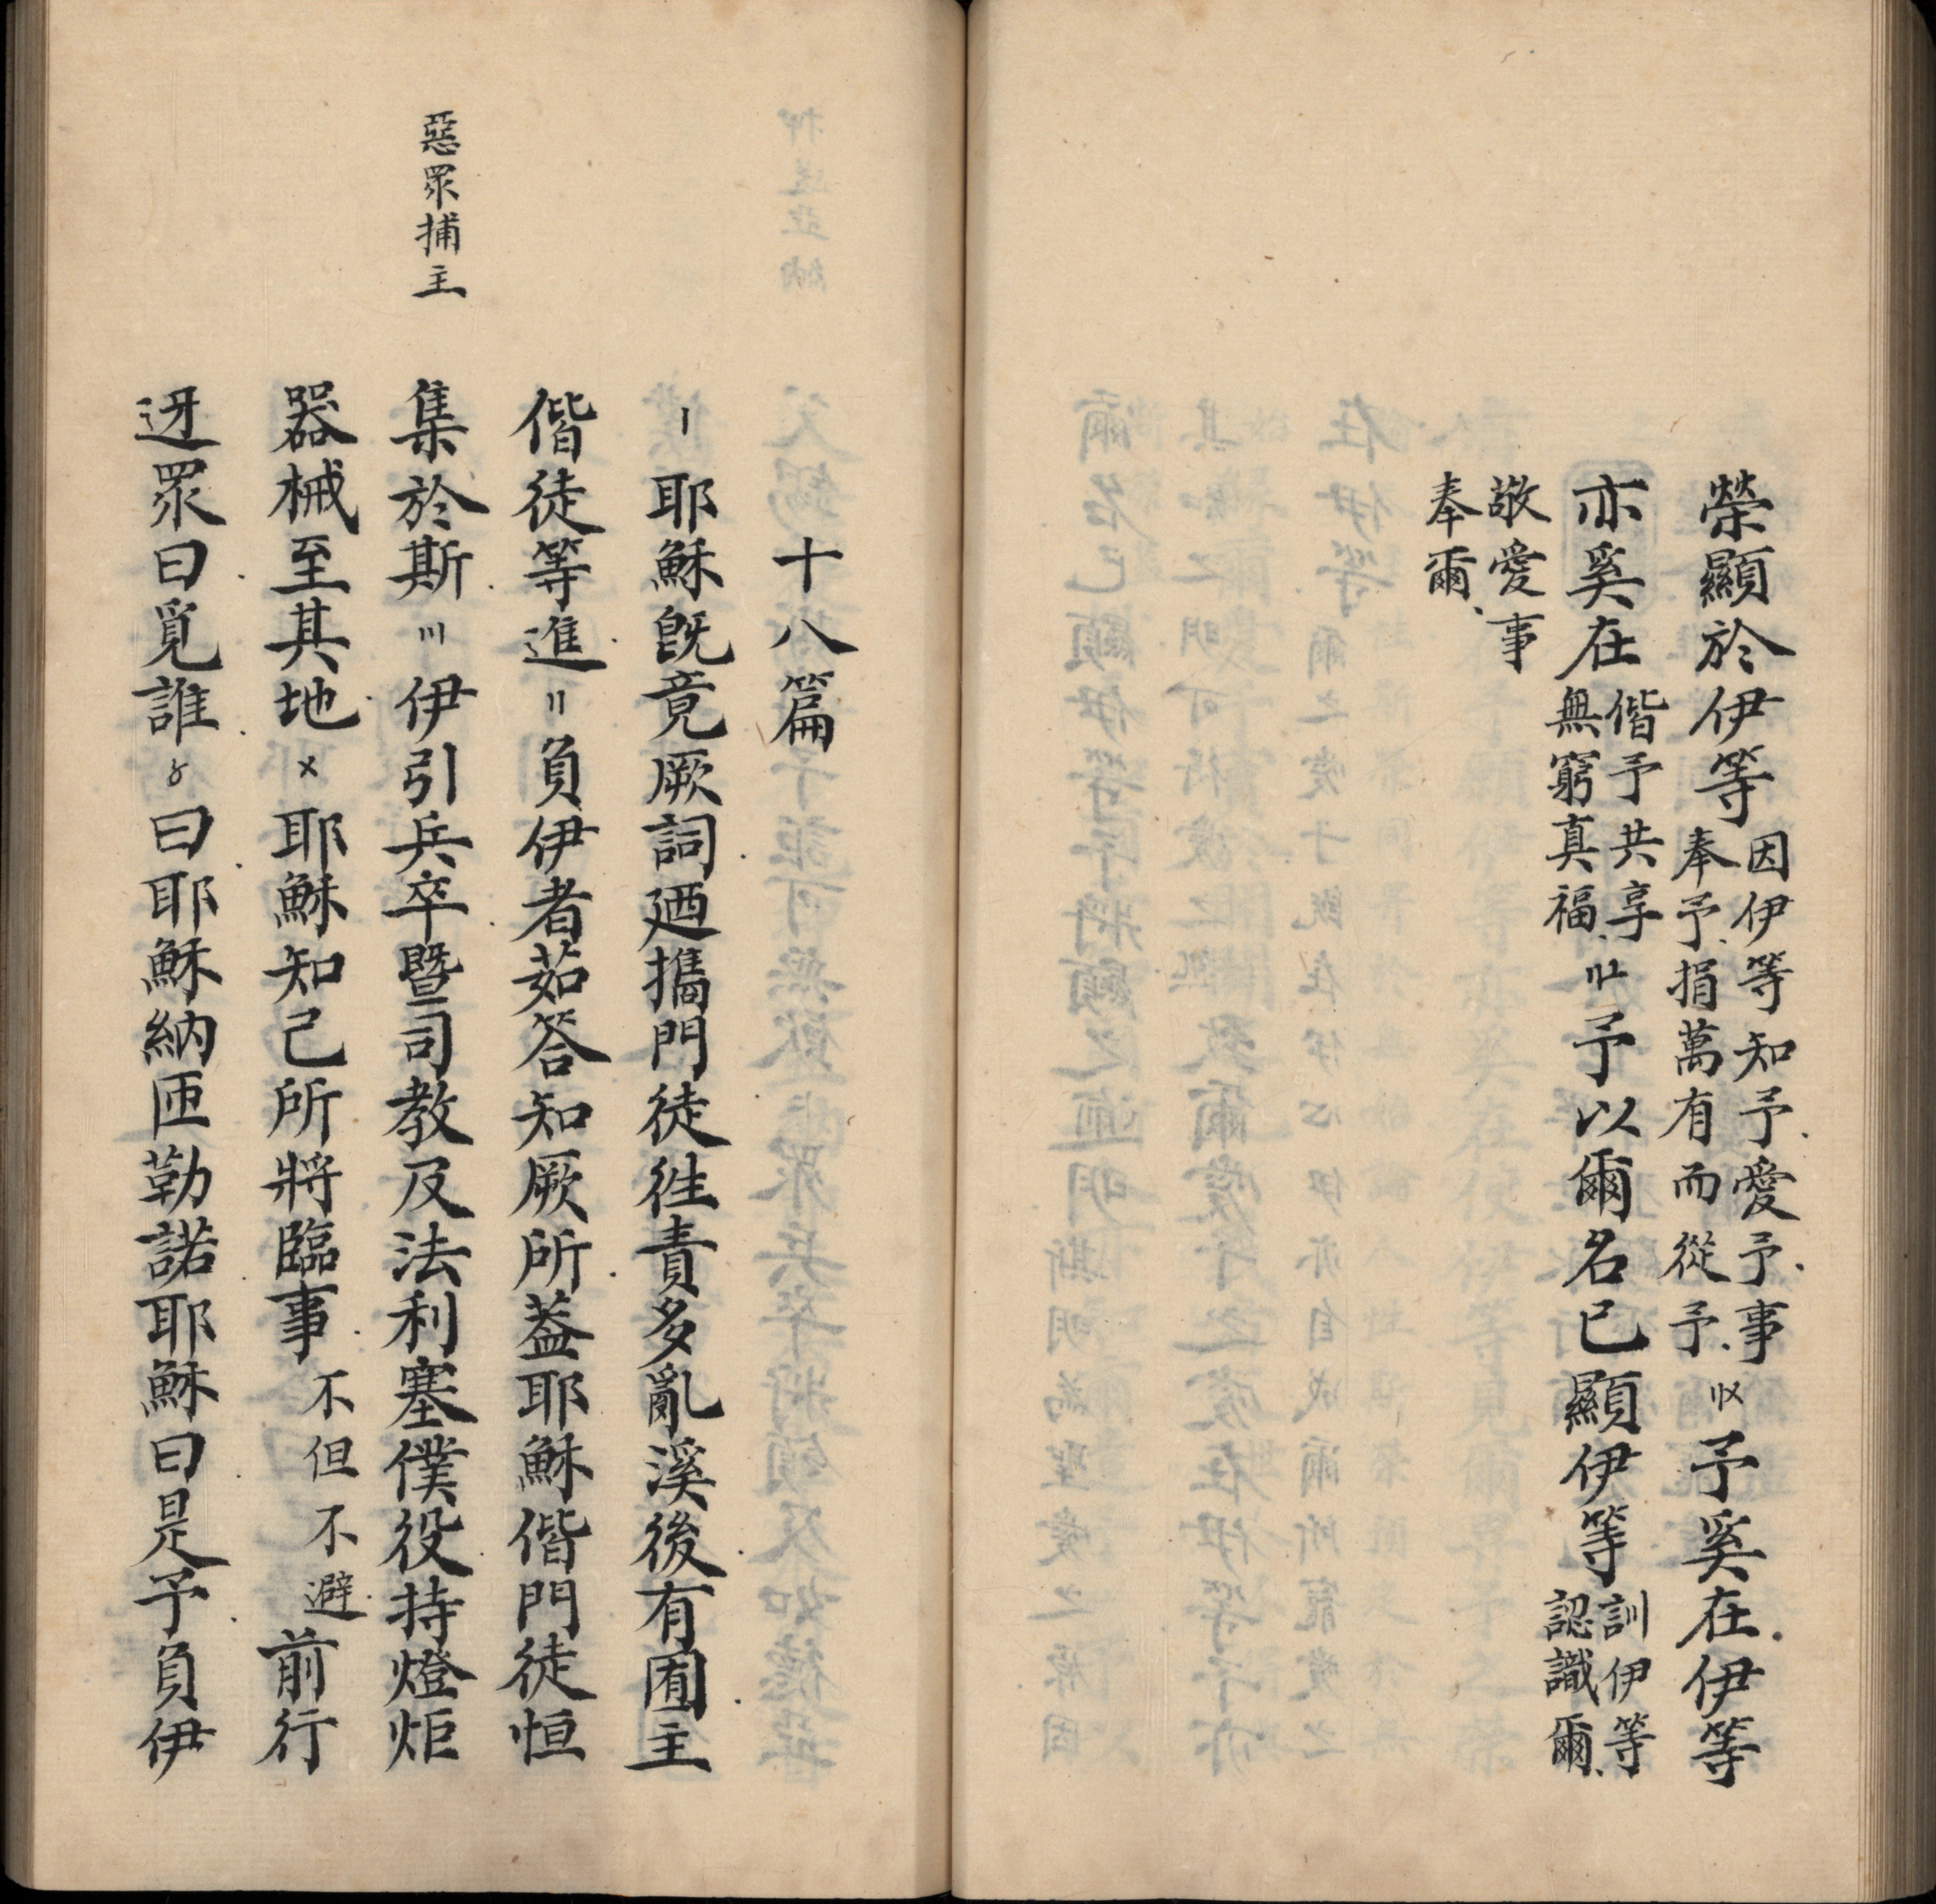 榮顯於伊等因伊等知予.愛予.事奉予.捐萬有而從予.〢〤予奚在.伊等
亦奚在偕予共享無窮真福.〢〦予以爾名已顯伊等訓伊等認識爾.
敬愛事奉爾.
十八篇
〡耶穌既竟厥詞.廼攜門徒徃責多亂溪後.有囿.主
偕徒等進.〢負伊者茹荅知厥所.葢耶穌偕門徒恒
集於斯.〣伊引兵卒.暨司教及法利塞僕役.持燈炬
器械至其地.〤耶穌知己所將臨事.不但不避.前行
迓眾曰.覓誰.〥曰.耶穌納匝勒諾耶穌曰.是予.負伊
惡眾捕主